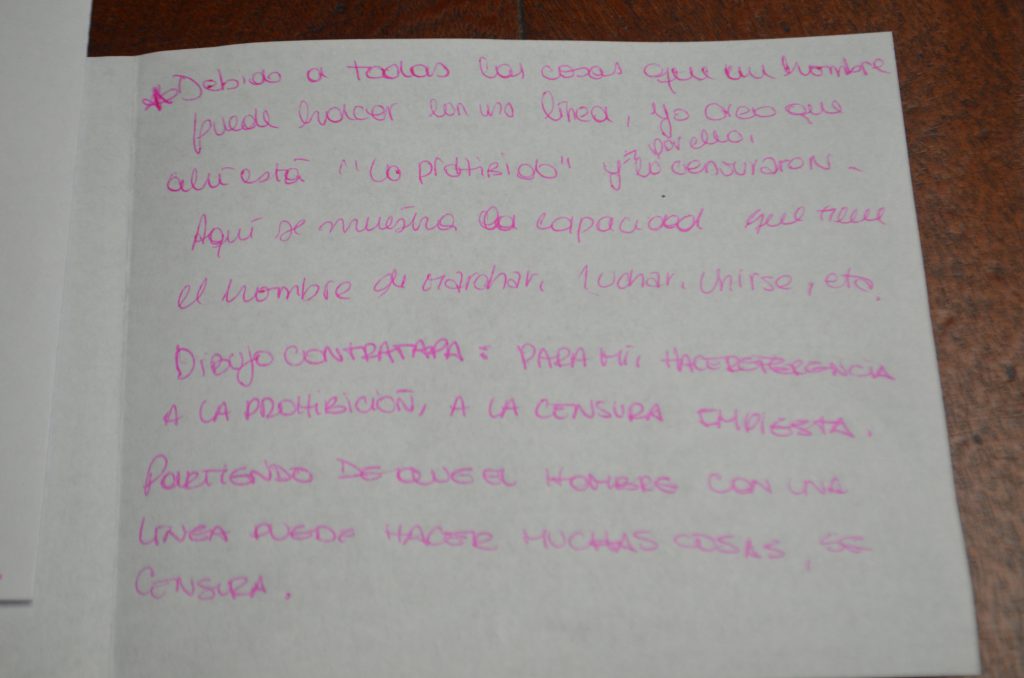 * Debido a todas las cosas que un hombre
puede hacer con una línea, yo creo que
por ello,
ahí está "lo prohibido" y lo censuraron -
Aquí se muestra la capacidad que tiene
el hombre de marchar, luchar, unirse, etc.
DIBUJO CONTRATAPA: PARA MÍ, HACE REFERENCIA
A LA PROHIBICIÓN, A LA CENSURA IMPUESTA.
PARTIENDO DE QUE EL HOMBRE CON UNA
LÍNEA PUEDE HACER MUCHAS COSAS, SE
CENSURA.